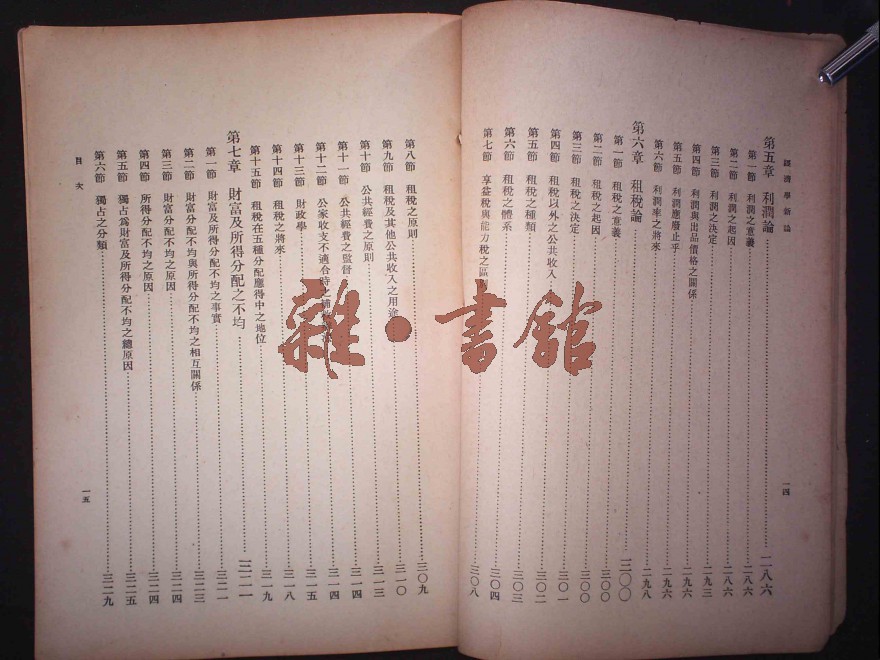 經濟學新論
第五章 利潤論……二八六
第一節 利潤之意義……二八六
第二節 利潤之起因……二八六
第三節 利潤之決定……二九三
第四節 利潤與出品價格之關係……二九六
第五節 利潤應廢止乎……二九六
第六節 利潤率之將來……二九八
第六章 租稅論……三〇〇
第一節 租稅之意義……三〇〇
第二節 租稅之起因……三〇〇
第三節 租稅之決定……三〇一
第四節 租稅以外之公共收入……三〇二
第五節 租稅之種類……三〇三
第六節 租稅之體系……三〇四
第七節 享益稅與能力稅之區……三〇八
一四
第八節 租稅之原則……三〇九
第九節 租稅及其他公共收入之用途……三一〇
第十節 公共經費之原則……三一三
第十一節 公共經費之監督……三一四
第十二節 公家收支不適合時之……三一四
第十三節 財政學……三一五
第十四節 租稅之將來……三一八
第十五節 租稅在五種分配應得中之地位……三一九
第七章 財富及所得分配之不均……三二一
第一節 財富及所得分配不均之事實……三二一
第二節 財富分配不均與所得分配不均之相互關係……三二三
第三節 財富分配不均之原因……三二四
第四節 所得分配不均之原因……三二四
第五節 獨占為財富及所得分配不均之總原因……三二五
第六節 獨占之分類……三二九
目次
一五
雜·書館